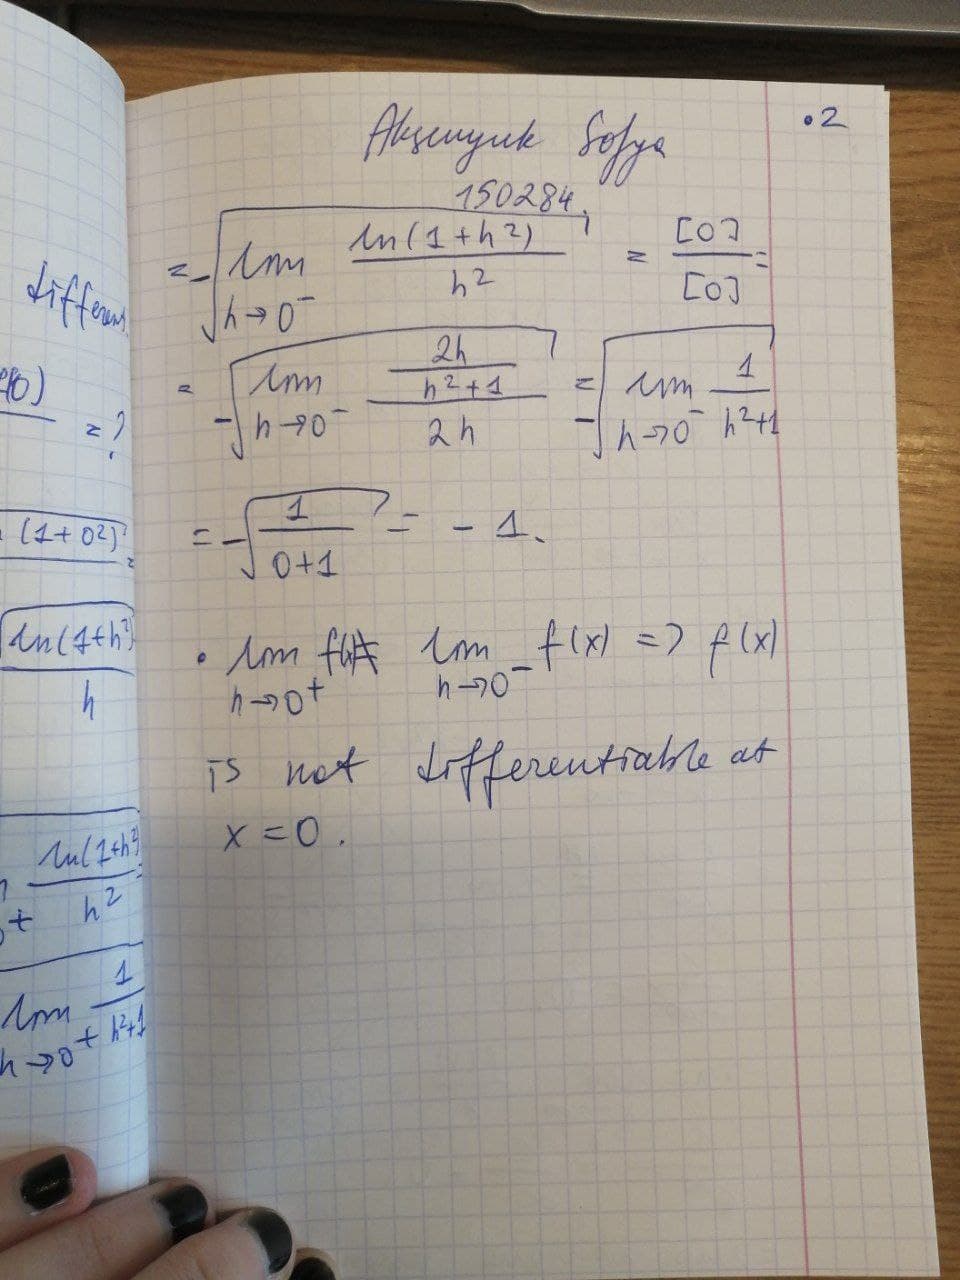 different.
f(0)
= ?
(1+0²)
=
ln(1+h²)
h
ln(1+h²)
h²
+
lim 1
h→0⁺ h²+1
•2
Aksenyuk Sofya
150284.
= -√(lim h→0⁻ ln(1+h²)/h²) = [0]/[0] =
= -√(lim h→0⁻ (2h/(h²+1))/2h) = -√(lim h→0⁻ 1/(h²+1))
= -√(1/(0+1)) = -1.
• lim h→0⁺ f(x) ≠ lim h→0⁻ f(x) => f(x)
is not differentiable at
x = 0.